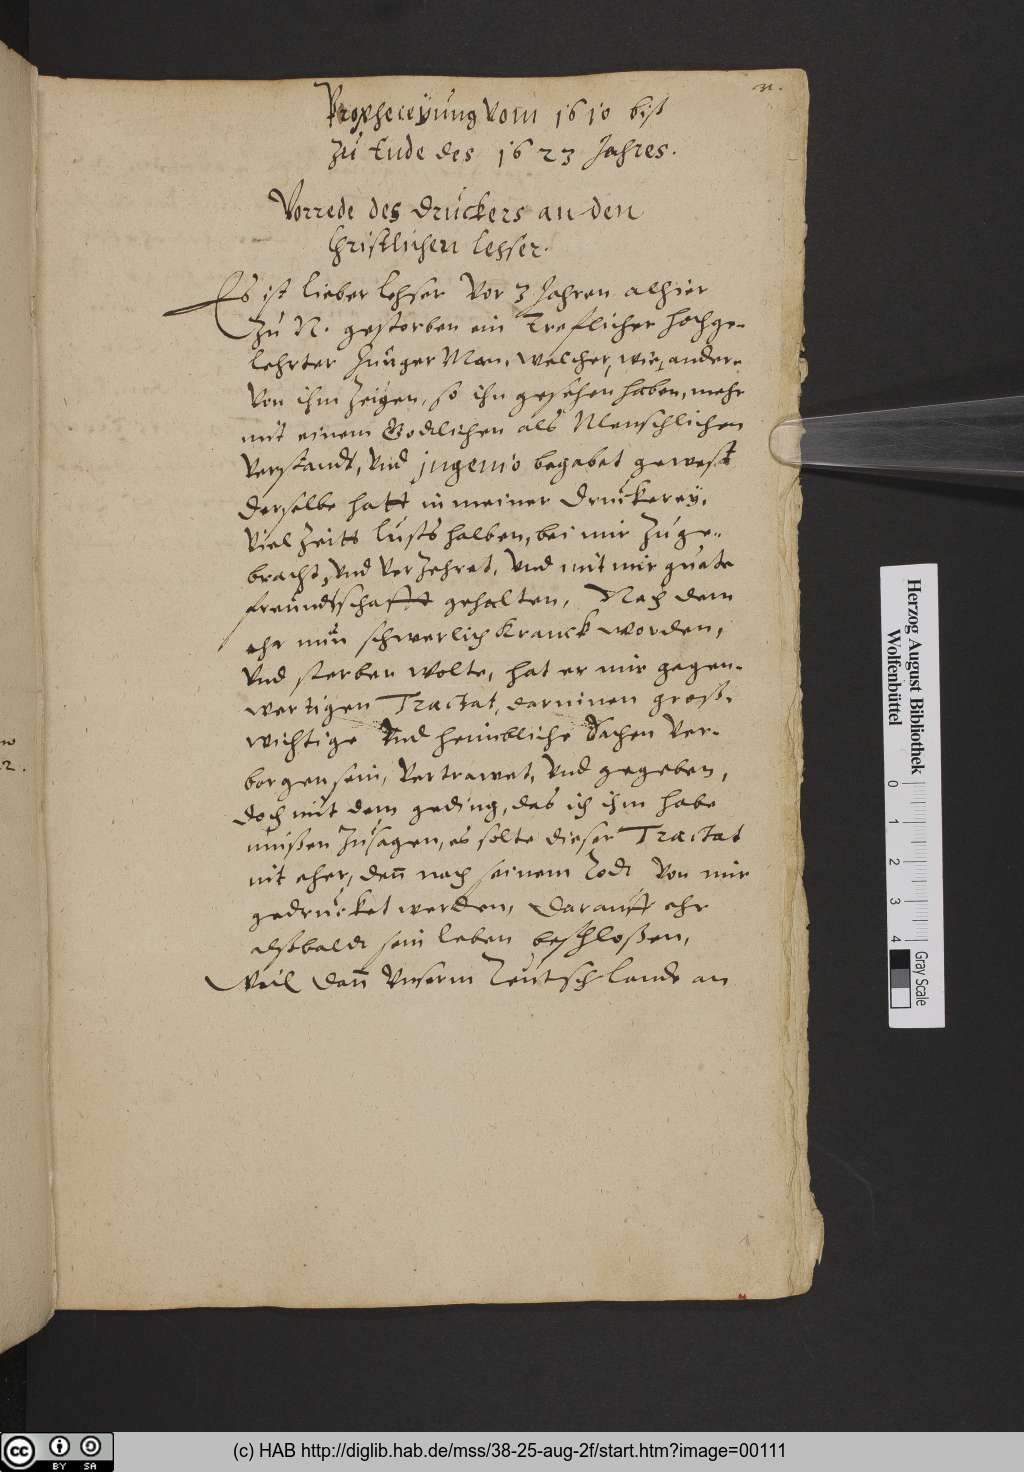 Propheceÿung vom 1610 biß
zu Ende des 1623 Jahres.
Vorrede des Druckers an den
Christlichen lehser.
Es ist lieber lehser Vor 3 Jahren alhier
zu N. gestorben ein Treflicher hochge-
lehrter Junger Man, welcher, wie ander-
Von ihm zeigen, so ihn gesehen haben, mehr
mit einem Godlichen als Menschlichen
Verstandt, Vnd jngenio begabet gewest
derselbe hatt in meiner Druckereÿ,
Viel Zeitt lusts halben, bei mir zuge-
bracht, Vnd Verzehret, Vnd mit mir guete
freundtschafft gehalten, Nach dem
ehr nun schwerlich Kranck worden,
Vnd sterben wolte, hat er mir gegen-
wertigen Tractat, darinnen große
wichtige Vnd heimbliche Sachen Ver-
borgen sein, Vertrawet, Vnd gegeben,
doch mit dem geding, das ich ihm habe
mußen zusagen, es solte dieser Tractat
nit eher, den̄ nach seinem Todt Von mir
gedrucket werden, darauff ehr
alßbaldt sein leben beschloßen,
Weil dan̄ Vnserm Teutschlande an
Herzog August Bibliothek
Wolfenbüttel
0 1 2 3 4
Gray Scale
cc BY SA
(c) HAB http://diglib.hab.de/mss/38-25-aug-2f/start.htm?image=00111